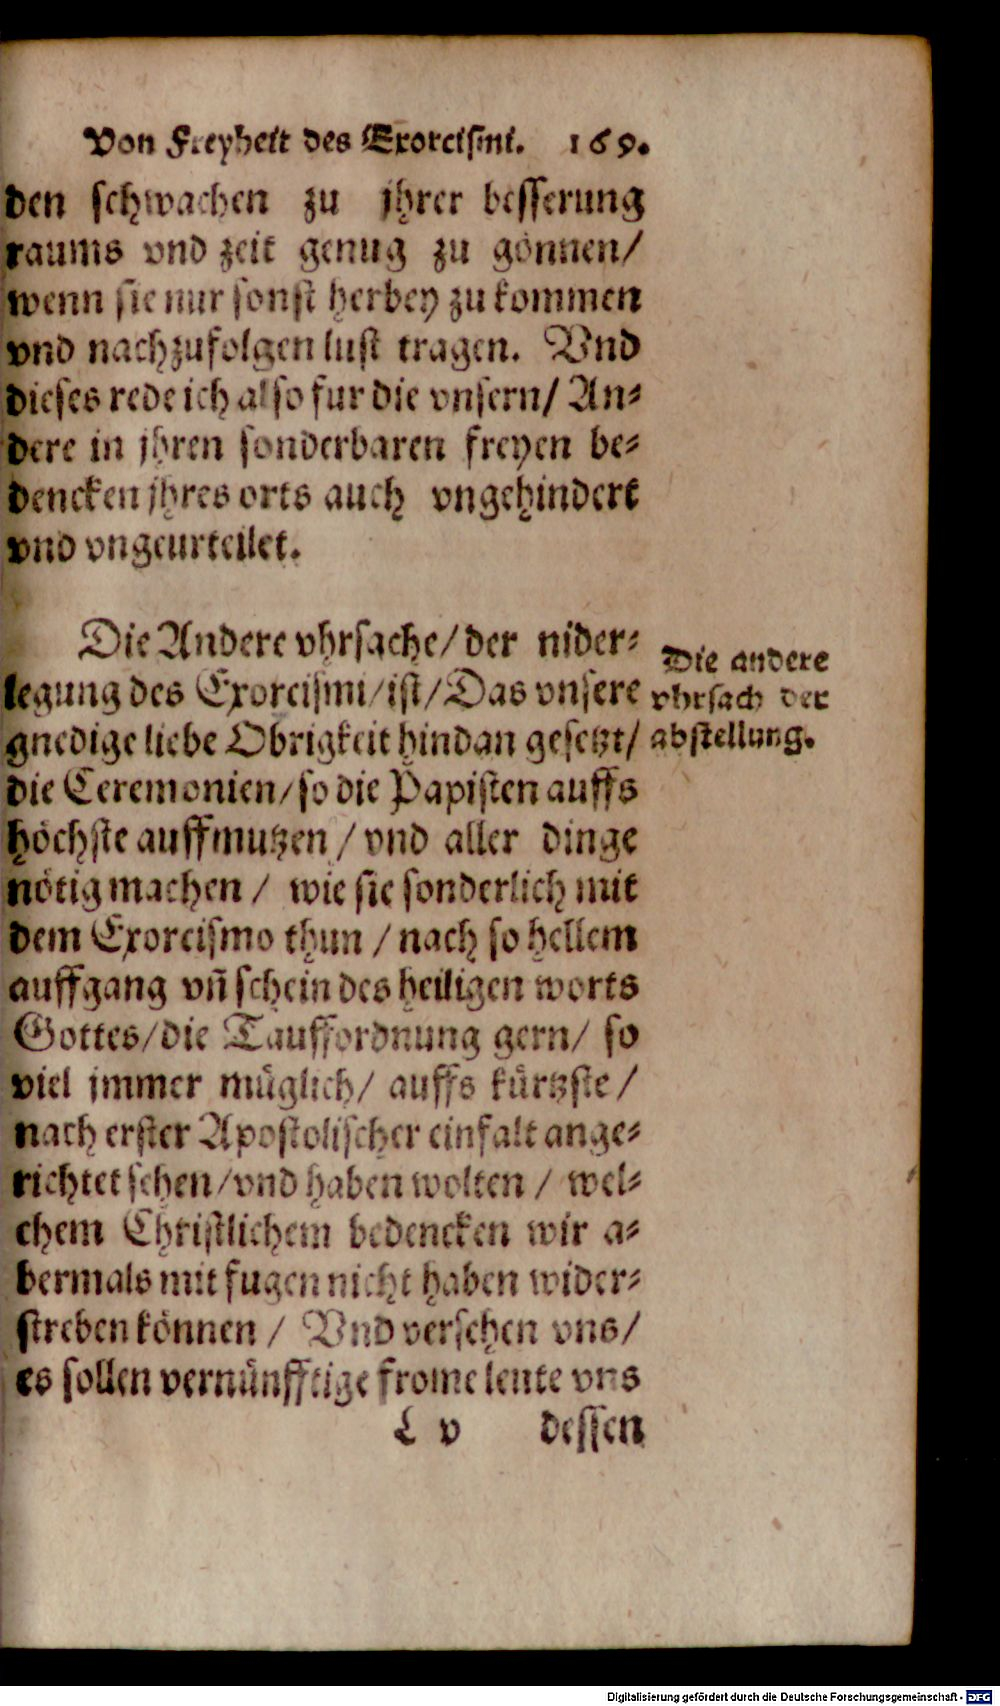 Von Freyheit des Exorcismi. 169.
den schwachen zu jhrer besserung
raums vnd zeit genug zu gönnen/
wenn sie nur sonst herbey zu kommen
vnd nachzufolgen lust tragen. Vnd
dieses rede ich also fur die vnsern/ An-
dere in jhren sonderbaren freyen be-
dencken jhres orts auch vngehindert
vnd vngeurteilet.
Die Andere vhrsache/ der nider-
legung des Exorcismi/ist/Das vnsere
gnedige liebe Obrigkeit hindan gesetzt/
die Ceremonien/so die Papisten auffs
höchste auffmutzen / vnd aller dinge
nötig machen / wie sie sonderlich mit
dem Exorcismo thun / nach so hellem
auffgang vñ schein des heiligen worts
Gottes/die Tauffordnung gern/ so
viel jmmer müglich/ auffs kürtzste/
nach erster Apostolischer einfalt ange-
richtet sehen/vnd haben wolten / wel-
chem Christlichem bedencken wir a-
bermals mit fugen nicht haben wider-
streben können / Vnd versehen vns/
es sollen vernünfftige frome leute vns
L v dessen
Die andere
vhrsach der
abstellung.
Digitalisierung gefördert durch die Deutsche Forschungsgemeinschaft - DFG